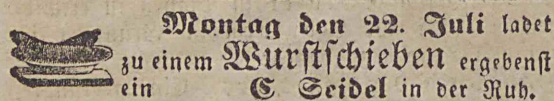 Montag den 22. Juli ladet
zu einem Wurstschieben ergebenst
ein C. Seidel in der Ruh.